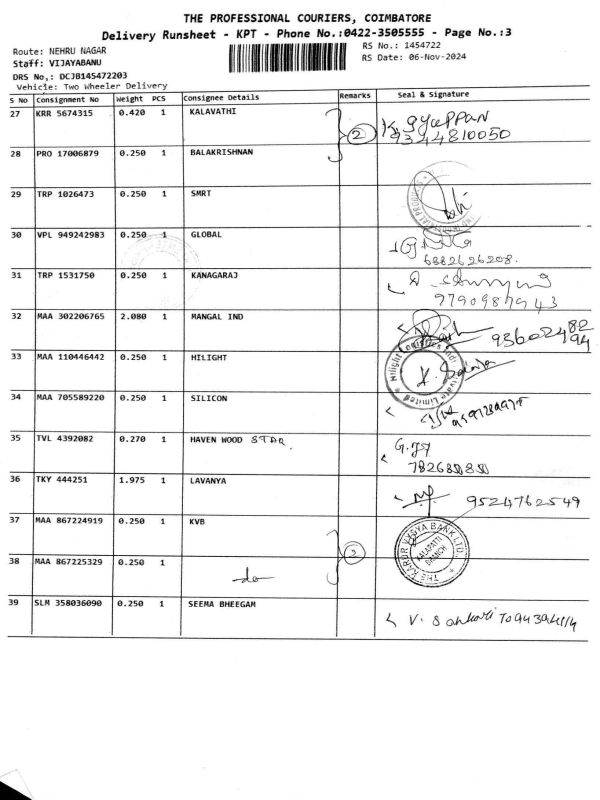 THE PROFESSIONAL COURIERS, COIMBATORE
Delivery Runsheet - KPT - Phone No.:0422-3505555 - Page No.:3
Route: NEHRU NAGAR
RS No.: 1454722
Staff: VIJAYABANU
RS Date: 06-Nov-2024
DRS No,: DCJB145472203
Vehicle: Two Wheeler Delivery
S No Consignment No Weight PCS Consignee Details Remarks Seal & Signature
27 KRR 5674315 0.420 1 KALAVATHI
2
9344810050
28 PRO 17006879 0.250 1 BALAKRISHNAN
29 TRP 1026473 0.250 1 SMRT
30 VPL 949242983 0.250 1 GLOBAL
6882626208.
31 TRP 1531750 0.250 1 KANAGARAJ
9790987943
32 MAA 302206765 2.080 1 MANGAL IND
33 MAA 110446442 0.250 1 HILIGHT
34 MAA 705589220 0.250 1 SILICON
35 TVL 4392082 0.270 1 HAVEN WOOD STAR
36 TKY 444251 1.975 1 LAVANYA
9524762549
37 MAA 867224919 0.250 1 KVB
2
THE KARUR VYSYA BANK LTD.
KALAPATTI
BRANCH
38 MAA 867225329 0.250 1
do
39 SLM 358036090 0.250 1 SEEMA BHEEGAM